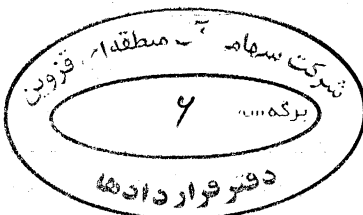 شرکت سهامی آب منطقه‌ای قزوین
برگه
۶
دفتر قراردادها